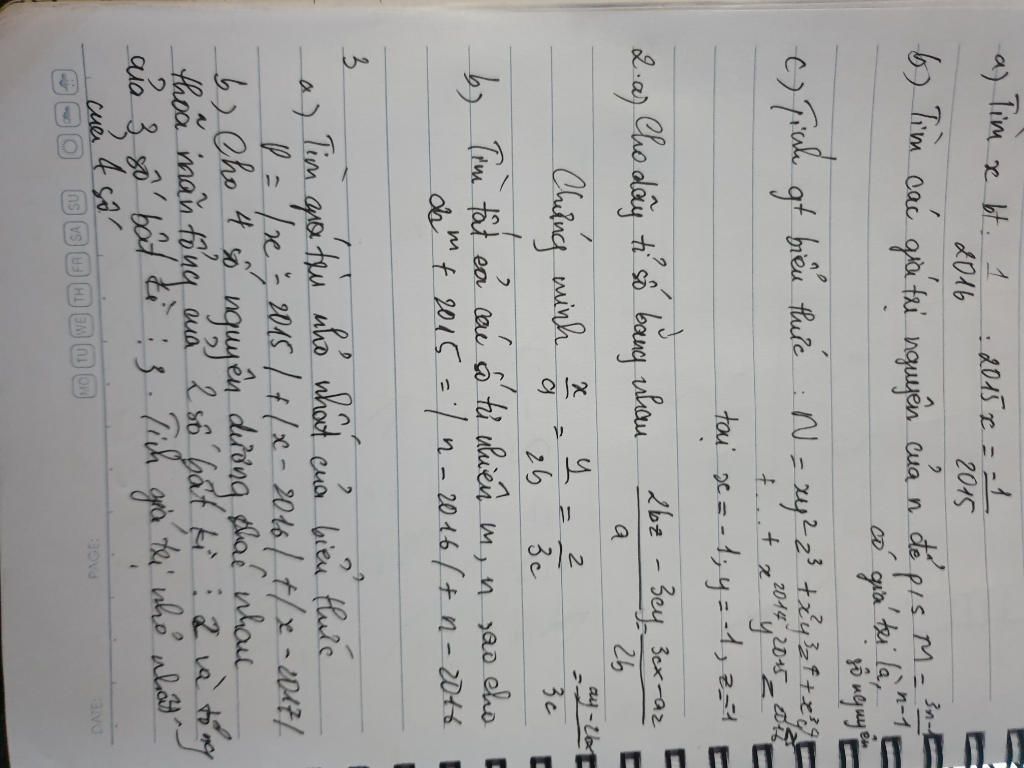 a) Tìm x bt. 1/2016 : 2015x = -1/2015
b) Tìm các giá trị nguyên của n để p/s M = 3n-1/n-1
có giá trị là
số nguyên
c) Tính gt biểu thức : N = xy²z³ + x²y³z⁴ + x³y
+ ... + x²⁰¹⁴y²⁰¹⁵z²⁰¹⁶
tại x = -1, y = -1, z = -1
2. a) Cho dãy tỉ số bằng nhau 2bz - 3cy/a = 3cx - az/2b
= ay - 2bx/3c
Chứng minh x/a = y/2b = z/3c
b) Tìm tất cả các số tự nhiên m, n sao cho
2^m + 2015 = | n - 2016 | + n - 2016
3
a) Tìm giá trị nhỏ nhất của biểu thức
P = | x - 2015 | + | x - 2016 | + | x - 2017 |
b) Cho 4 số nguyên dương khác nhau
thoả mãn tổng của 2 số bất kì : 2 và tổng
của 3 số bất kì : 3. Tính giá trị nhỏ nhất
của 4 số
MO TU WE TH FR SA SU
PAGE:
DATE: